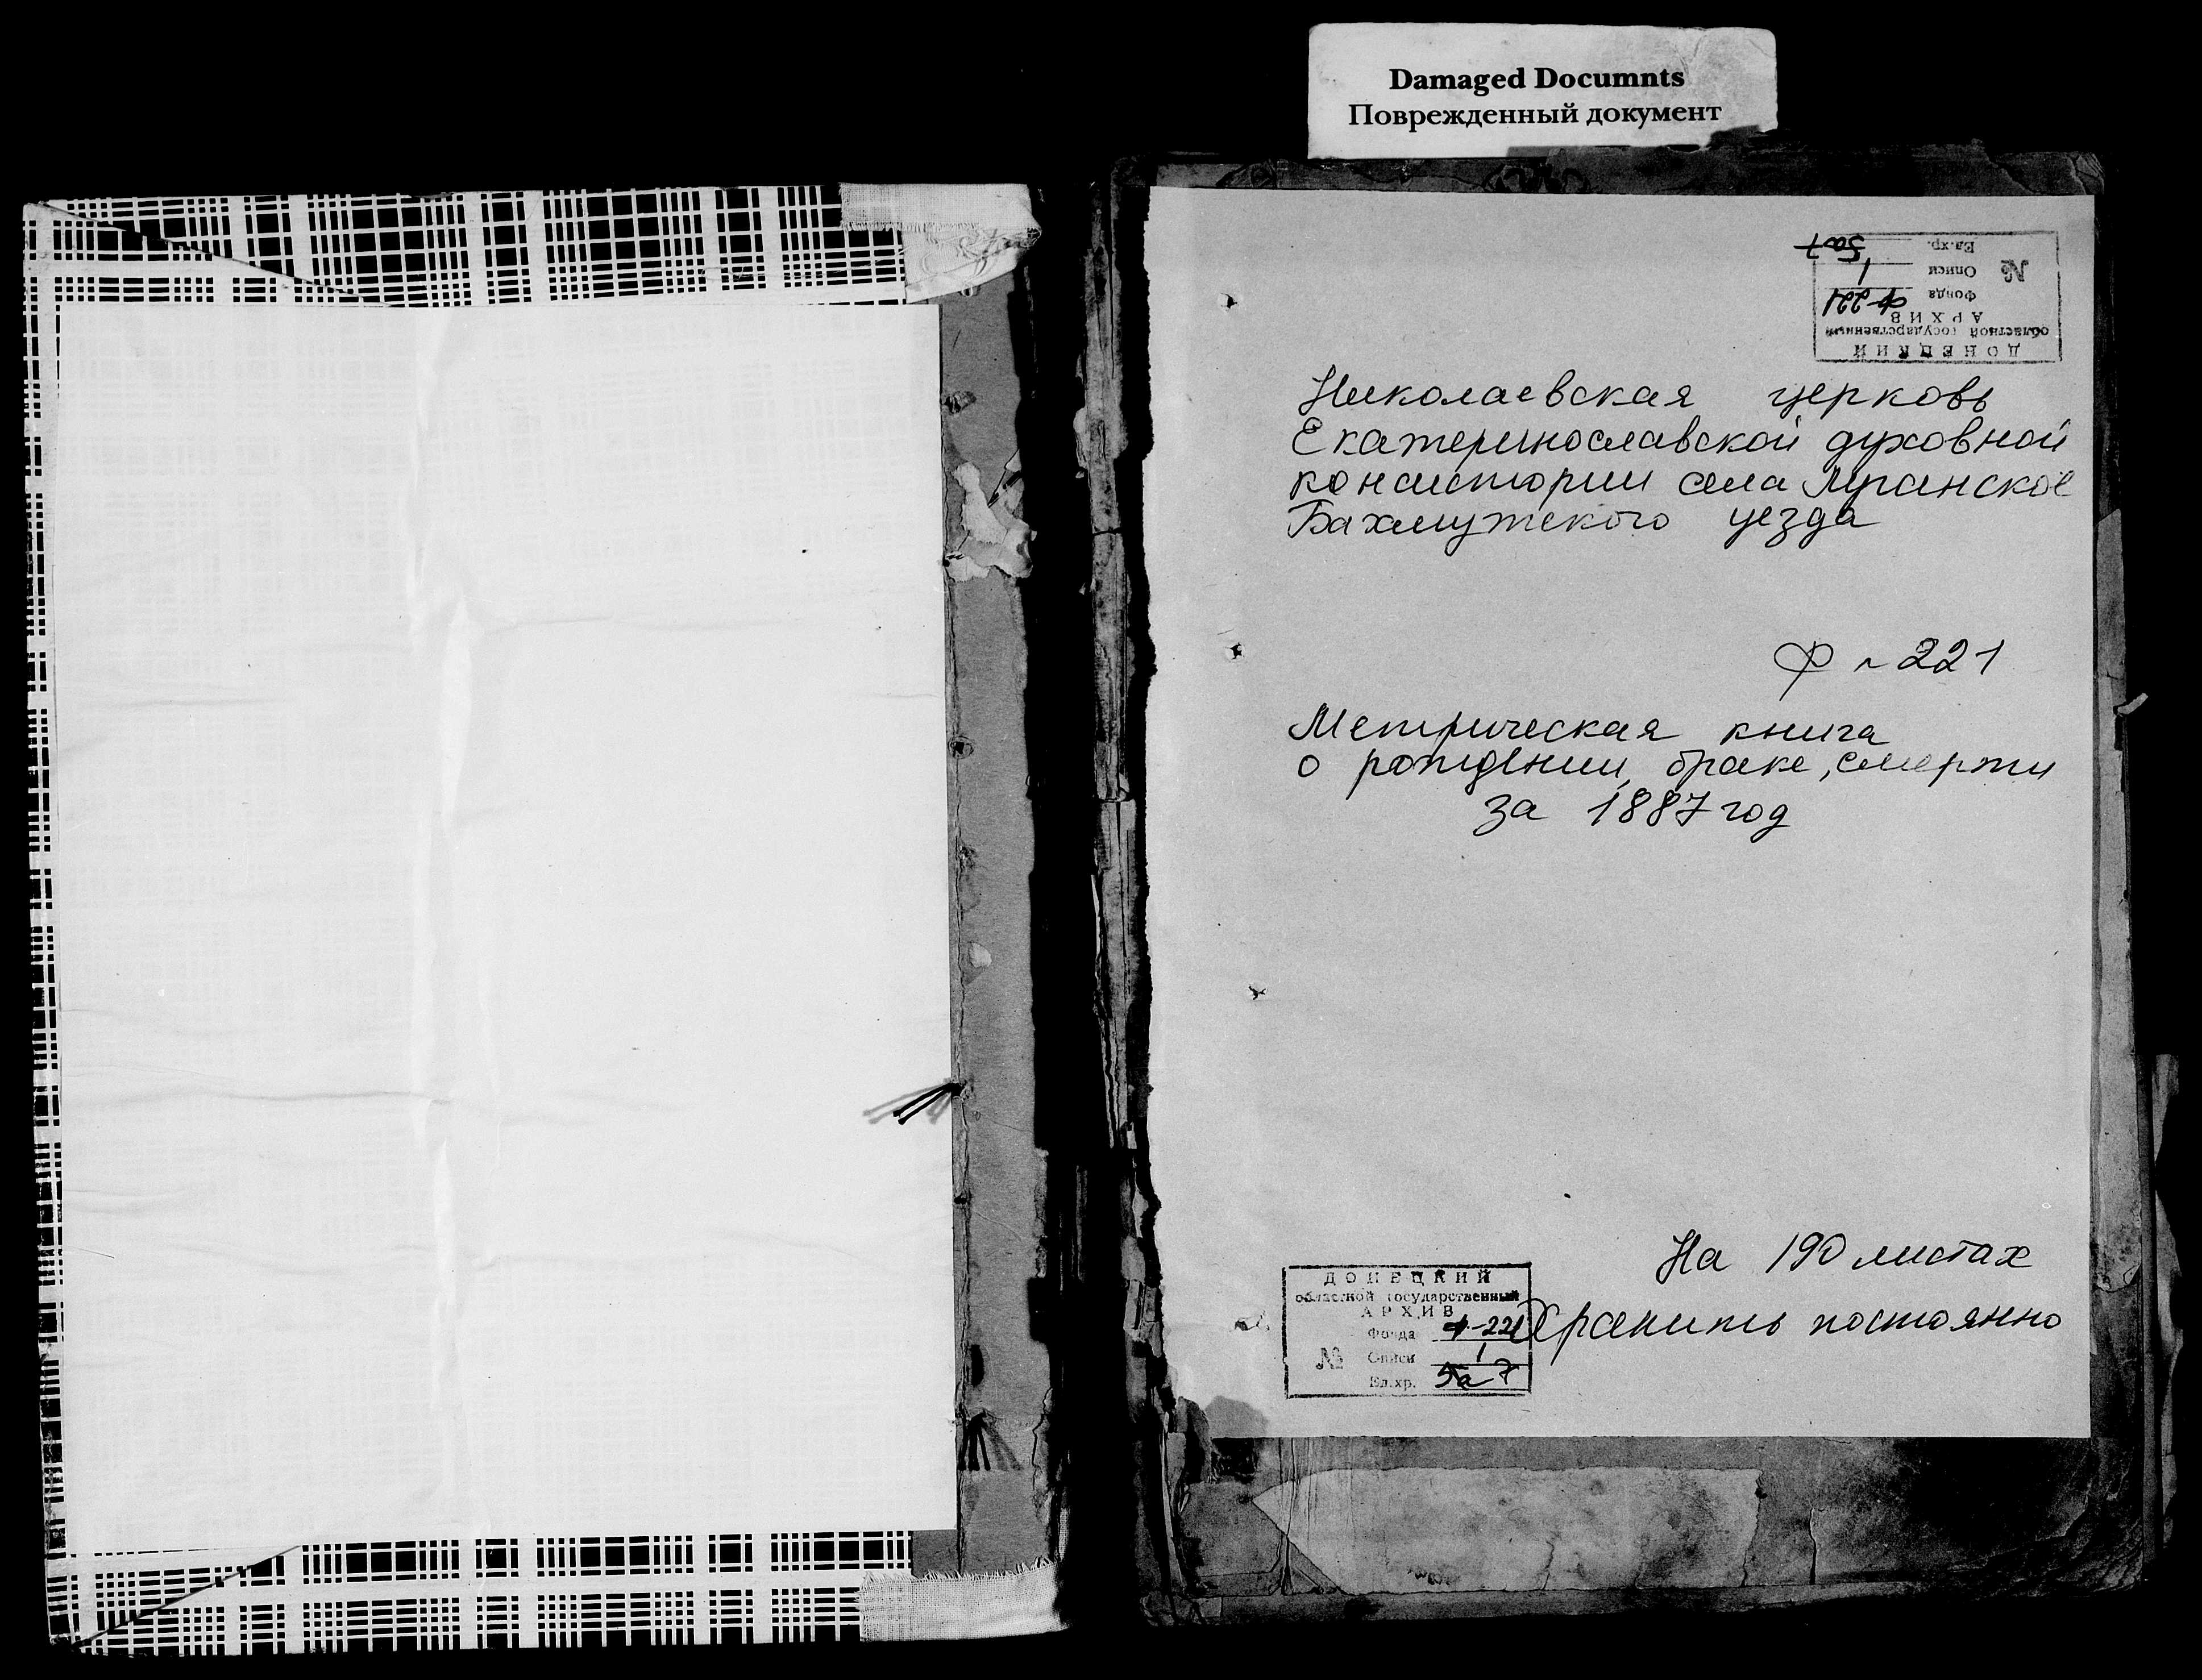 Damaged Documnts
Поврежденный документ
ДОНЕЦКИЙ
областной государственный
АРХИВ
Фонда ф-221
№ Описи 1
Ед.хр. 5а7
Николаевская церковь
Екатеринославской духовной
консистории села Луганское
Бахмутского уезда
Ф № 221
Метрическая книга
о рождении, браке, смерти
за 1887 год
На 190 листах
Хранить постоянно
ДОНЕЦКИЙ
областной государственный
АРХИВ
Фонда ф-221
№ Описи 1
Ед.хр. 5а7